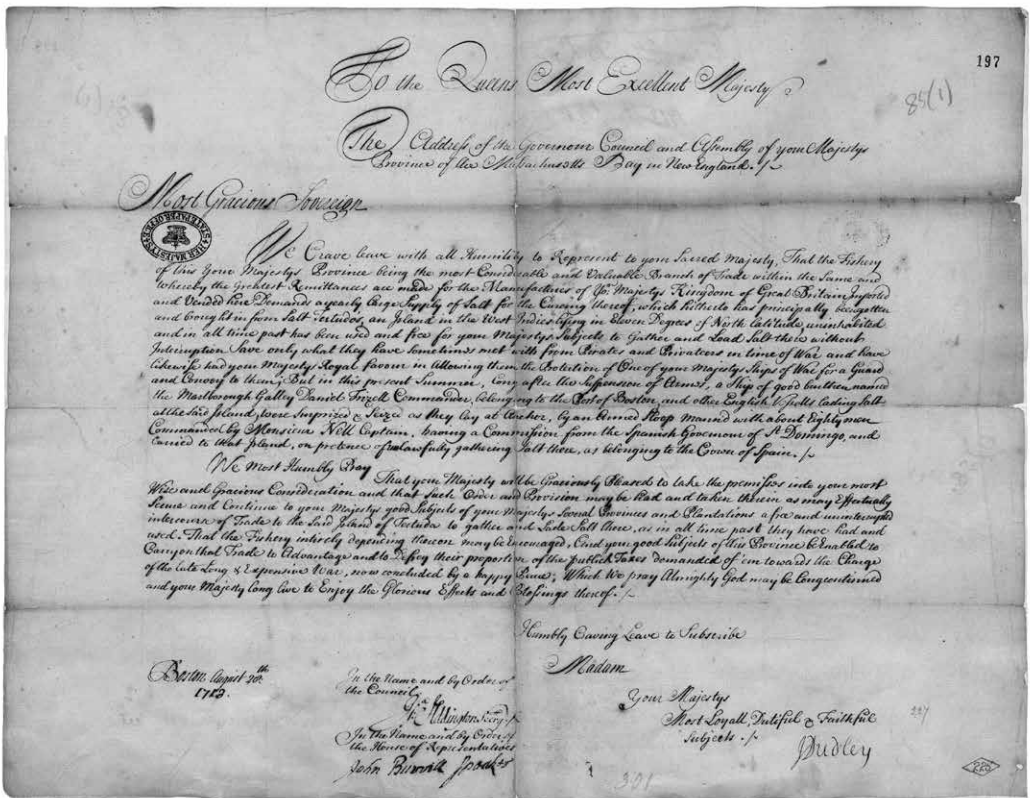 197
85(1)
To the Queens Most Excellent Majesty
The Address of the Governour Council and Assembly of your Majestys
Province of the Massachusetts Bay in New England. /
Most Gracious Sovereign
HER MAJESTY'S STATE PAPER OFFICE
We Crave leave with all Humility to Represent to your Sacred Majesty, That the Fishery
of this Your Majestys Province being the most Considerable and Valuable Branch of Trade within the Same and
whereby the Greatest Remittances are made for the Manufactures of Yor. Majestys Kingdom of Great Britain Imported
and Vended here Demands a yearly large Supply of Salt for the Curing thereof, which hitherto has principally been gotten
and brought in from Salt Tertudos, an Island in the West Indies lying in Eleven Degrees of North latitude, uninhabited
and in all time past has been used and free for your Majestys Subjects to Gather and Load Salt there without
Interruption Save only what they have sometimes met with from Pirates and Privateers in time of War and have
likewise had your Majestys Royal favour in allowing them the Protection of One of your Majestys Ships of War for a Guard
and Convoy to them; But in this present Summer, long after the Suspension of Arms, a Ship of good burthen named
the Marlborough Galley Daniel Frizell Commander, belonging to the Port of Boston, and other English Vessells lading Salt
at the said Island, were Surprized & Seized as they lay at Anchor, by an Armed Sloop Manned with about Eighty men
Commanded by Monsieur Nill Captain, having a Commission from the Spanish Governour of St. Domingo, and
carried to that Island, on pretence of unlawfully gathering Salt there, as belonging to the Crown of Spain. /
We Most Humbly Pray
That your Majesty will be Graciously Pleased to take the premisses into your most
Wise and Gracious Consideration and that such Order and Provision may be had and taken therein as may Effectually
Secure and Continue to your Majestys good Subjects of your Majestys Several Provinces and Plantations a free and uninterrupted
intercourse of Trade to the Said Island of Tortuda to gather and Lade Salt there, as in all time past they have had and
used. That the Fishery intirely depending thereon may be Encouraged, And your good Subjects of this Province be Enabled to
Carry on that Trade to Advantage and to Defray their proportion of the publick Taxes demanded of 'em towards the Charge
of the late Long & Expensive War, now concluded by a happy Peace; Which We pray Almighty God may be long continued
and your Majesty long live to Enjoy the Glorious Effects and Blessings thereof. /
Humbly Craving Leave to Subscribe
Madam
Your Majestys
Most Loyall, Dutiful & Faithful
Subjects. /
J Dudley
Boston August 20th.
1713.
In the Name and by Order of
the Council
Isa Addington Secry. /
In the Name and by Order of
the House of Representatives
John Burrill Speaker
227
301